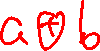 a ⊕ b